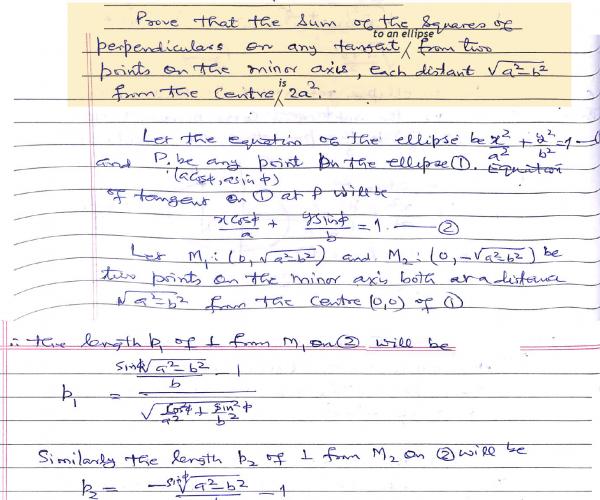 Prove that the sum of the squares of
perpendiculars on any tangent to an ellipse from two
points on the minor axis, each distant √a²-b²
from the centre is 2a².
Let the equation of the ellipse be x²/a² + y²/b² = 1
and P be any point on the ellipse ①. Equation
(acosϕ, asinϕ)
of tangent on ① at P will be
xcosϕ/a + ysinϕ/b = 1. — ②
Let M₁: (0, √a²-b²) and M₂: (0, -√a²-b²) be
two points on the minor axis both at a distance
√a²-b² from the centre (0,0) of ①
∴ The length p₁ of ⊥ from M₁ on ② will be
p₁ = (sinϕ√a²-b²/b - 1) / √(cos²ϕ/a² + sin²ϕ/b²)
Similarly the length p₂ of ⊥ from M₂ on ② will be
p₂ = -sinϕ√a²-b² - 1